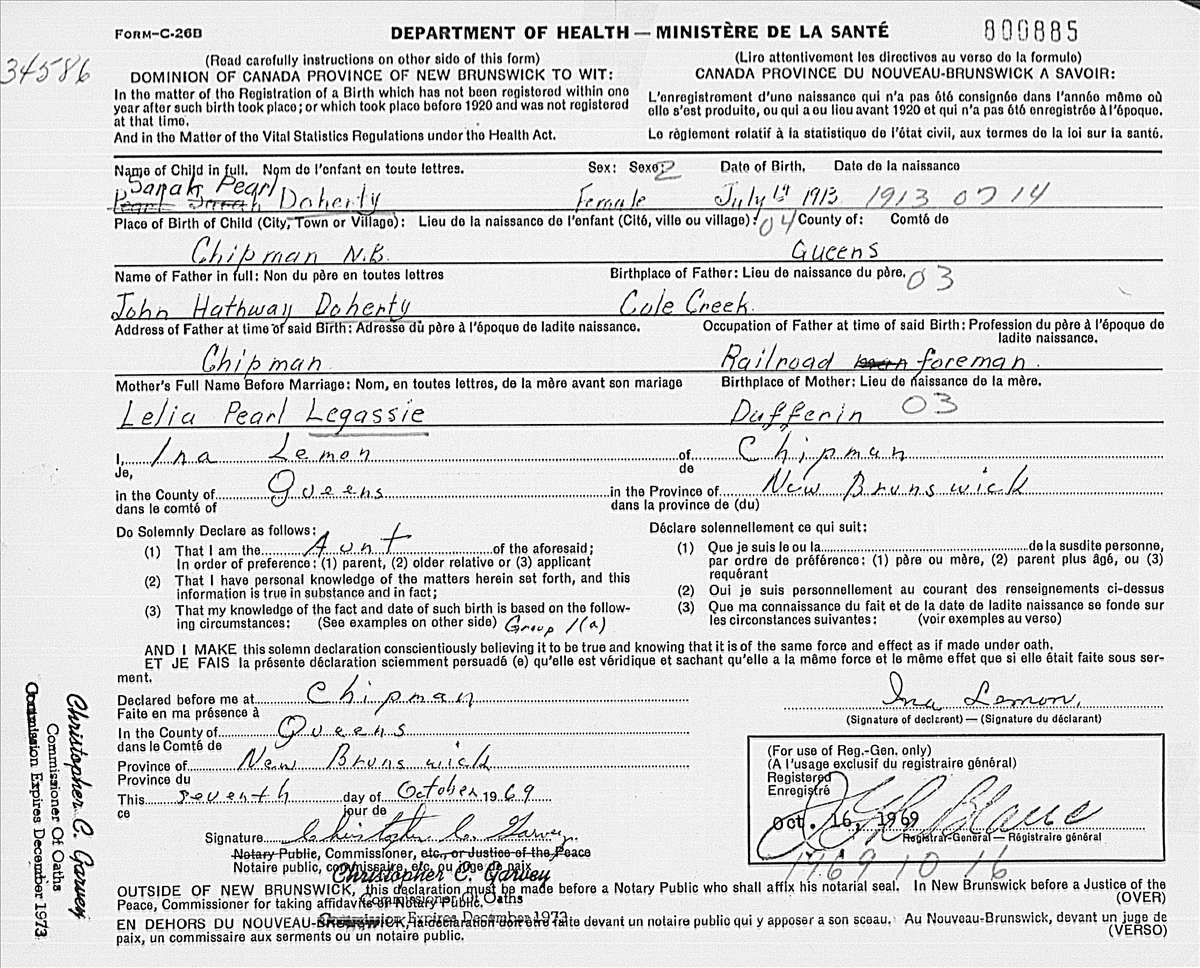 FORM-C-26B
DEPARTMENT OF HEALTH — MINISTÈRE DE LA SANTÉ
800885
34586
(Read carefully instructions on other side of this form)
DOMINION OF CANADA PROVINCE OF NEW BRUNSWICK TO WIT:
In the matter of the Registration of a Birth which has not been registered within one
year after such birth took place; or which took place before 1920 and was not registered
at that time.
And in the Matter of the Vital Statistics Regulations under the Health Act.
(Lire attentivement les directives au verso de la formule)
CANADA PROVINCE DU NOUVEAU-BRUNSWICK A SAVOIR:
L'enregistrement d'une naissance qui n'a pas été consignée dans l'année même où
elle s'est produite, ou qui a eu lieu avant 1920 et qui n'a pas été enregistrée à l'époque.
Le règlement relatif à la statistique de l'état civil, aux termes de la loi sur la santé.
Name of Child in full. Nom de l'enfant en toute lettres. Sex: Sexe: 2 Date of Birth, Date de la naissance
Sarah Pearl
Pearl Sarah Doherty Female July 14 1913 1913 07 14
Place of Birth of Child (City, Town or Village): Lieu de la naissance de l'enfant (Cité, ville ou village): 04 County of: Comté de
Chipman N.B. Queens
Name of Father in full: Non du père en toutes lettres Birthplace of Father: Lieu de naissance du père. 03
John Hathway Doherty Cole Creek.
Address of Father at time of said Birth: Adresse du père à l'époque de ladite naissance. Occupation of Father at time of said Birth: Profession du père à l'époque de
ladite naissance.
Chipman Railroad foreman.
Mother's Full Name Before Marriage: Nom, en toutes lettres, de la mère avant son mariage Birthplace of Mother: Lieu de naissance de la mère.
Lelia Pearl Legassie Dufferin 03
I, Ina Lemon of Chipman
Je, de
in the County of Queens in the Province of New Brunswick
dans le comté of dans la province de (du)
Do Solemnly Declare as follows:
(1) That I am the Aunt of the aforesaid;
In order of preference: (1) parent, (2) older relative or (3) applicant
(2) That I have personal knowledge of the matters herein set forth, and this
information is true in substance and in fact;
(3) That my knowledge of the fact and date of such birth is based on the follow-
ing circumstances: (See examples on other side) Group 1(a)
Déclare solennellement ce qui suit:
(1) Que je suis le ou la de la susdite personne,
par ordre de préférence: (1) père ou mère, (2) parent plus âgé, ou (3)
requérant
(2) Oui je suis personnellement au courant des renseignements ci-dessus
(3) Que ma connaissance du fait et de la date de ladite naissance se fonde sur
les circonstances suivantes: (voir exemples au verso)
AND I MAKE this solemn declaration conscientiously believing it to be true and knowing that it is of the same force and effect as if made under oath.
ET JE FAIS la présente déclaration sciemment persuadé (e) qu'elle est véridique et sachant qu'elle a la même force et le même effet que si elle était faite sous ser-
ment.
Declared before me at Chipman
Faite en ma présence à
In the County of Queens
dans le Comté de
Province of New Brunswick
Province du
This seventh day of October 1969
ce jour de
Signature Christopher C. Garvey
Notary Public, Commissioner, etc., or Justice of the Peace
Notaire public, commissaire, etc. ou juge de paix
Christopher C. Garvey
Commissioner Of Oaths
Commission Expires December 1973
Ina Lemon.
(Signature of declarent) — (Signature du déclarant)
(For use of Reg.-Gen. only)
(A l'usage exclusif du registraire général)
Registered
Enregistré
Oct. 16, 1969
Registrar-General — Régistraire général
1969 10 16
Christopher C. Garvey
Commissioner Of Oaths
Commission Expires December 1973
OUTSIDE OF NEW BRUNSWICK, this declaration must be made before a Notary Public who shall affix his notarial seal. In New Brunswick before a Justice of the
Peace, Commissioner for taking affidavits or Notary Public.
(OVER)
EN DEHORS DU NOUVEAU-BRUNSWICK, la déclaration doit être faite devant un notaire public qui y apposer a son sceau. Au Nouveau-Brunswick, devant un juge de
paix, un commissaire aux serments ou un notaire public.
(VERSO)